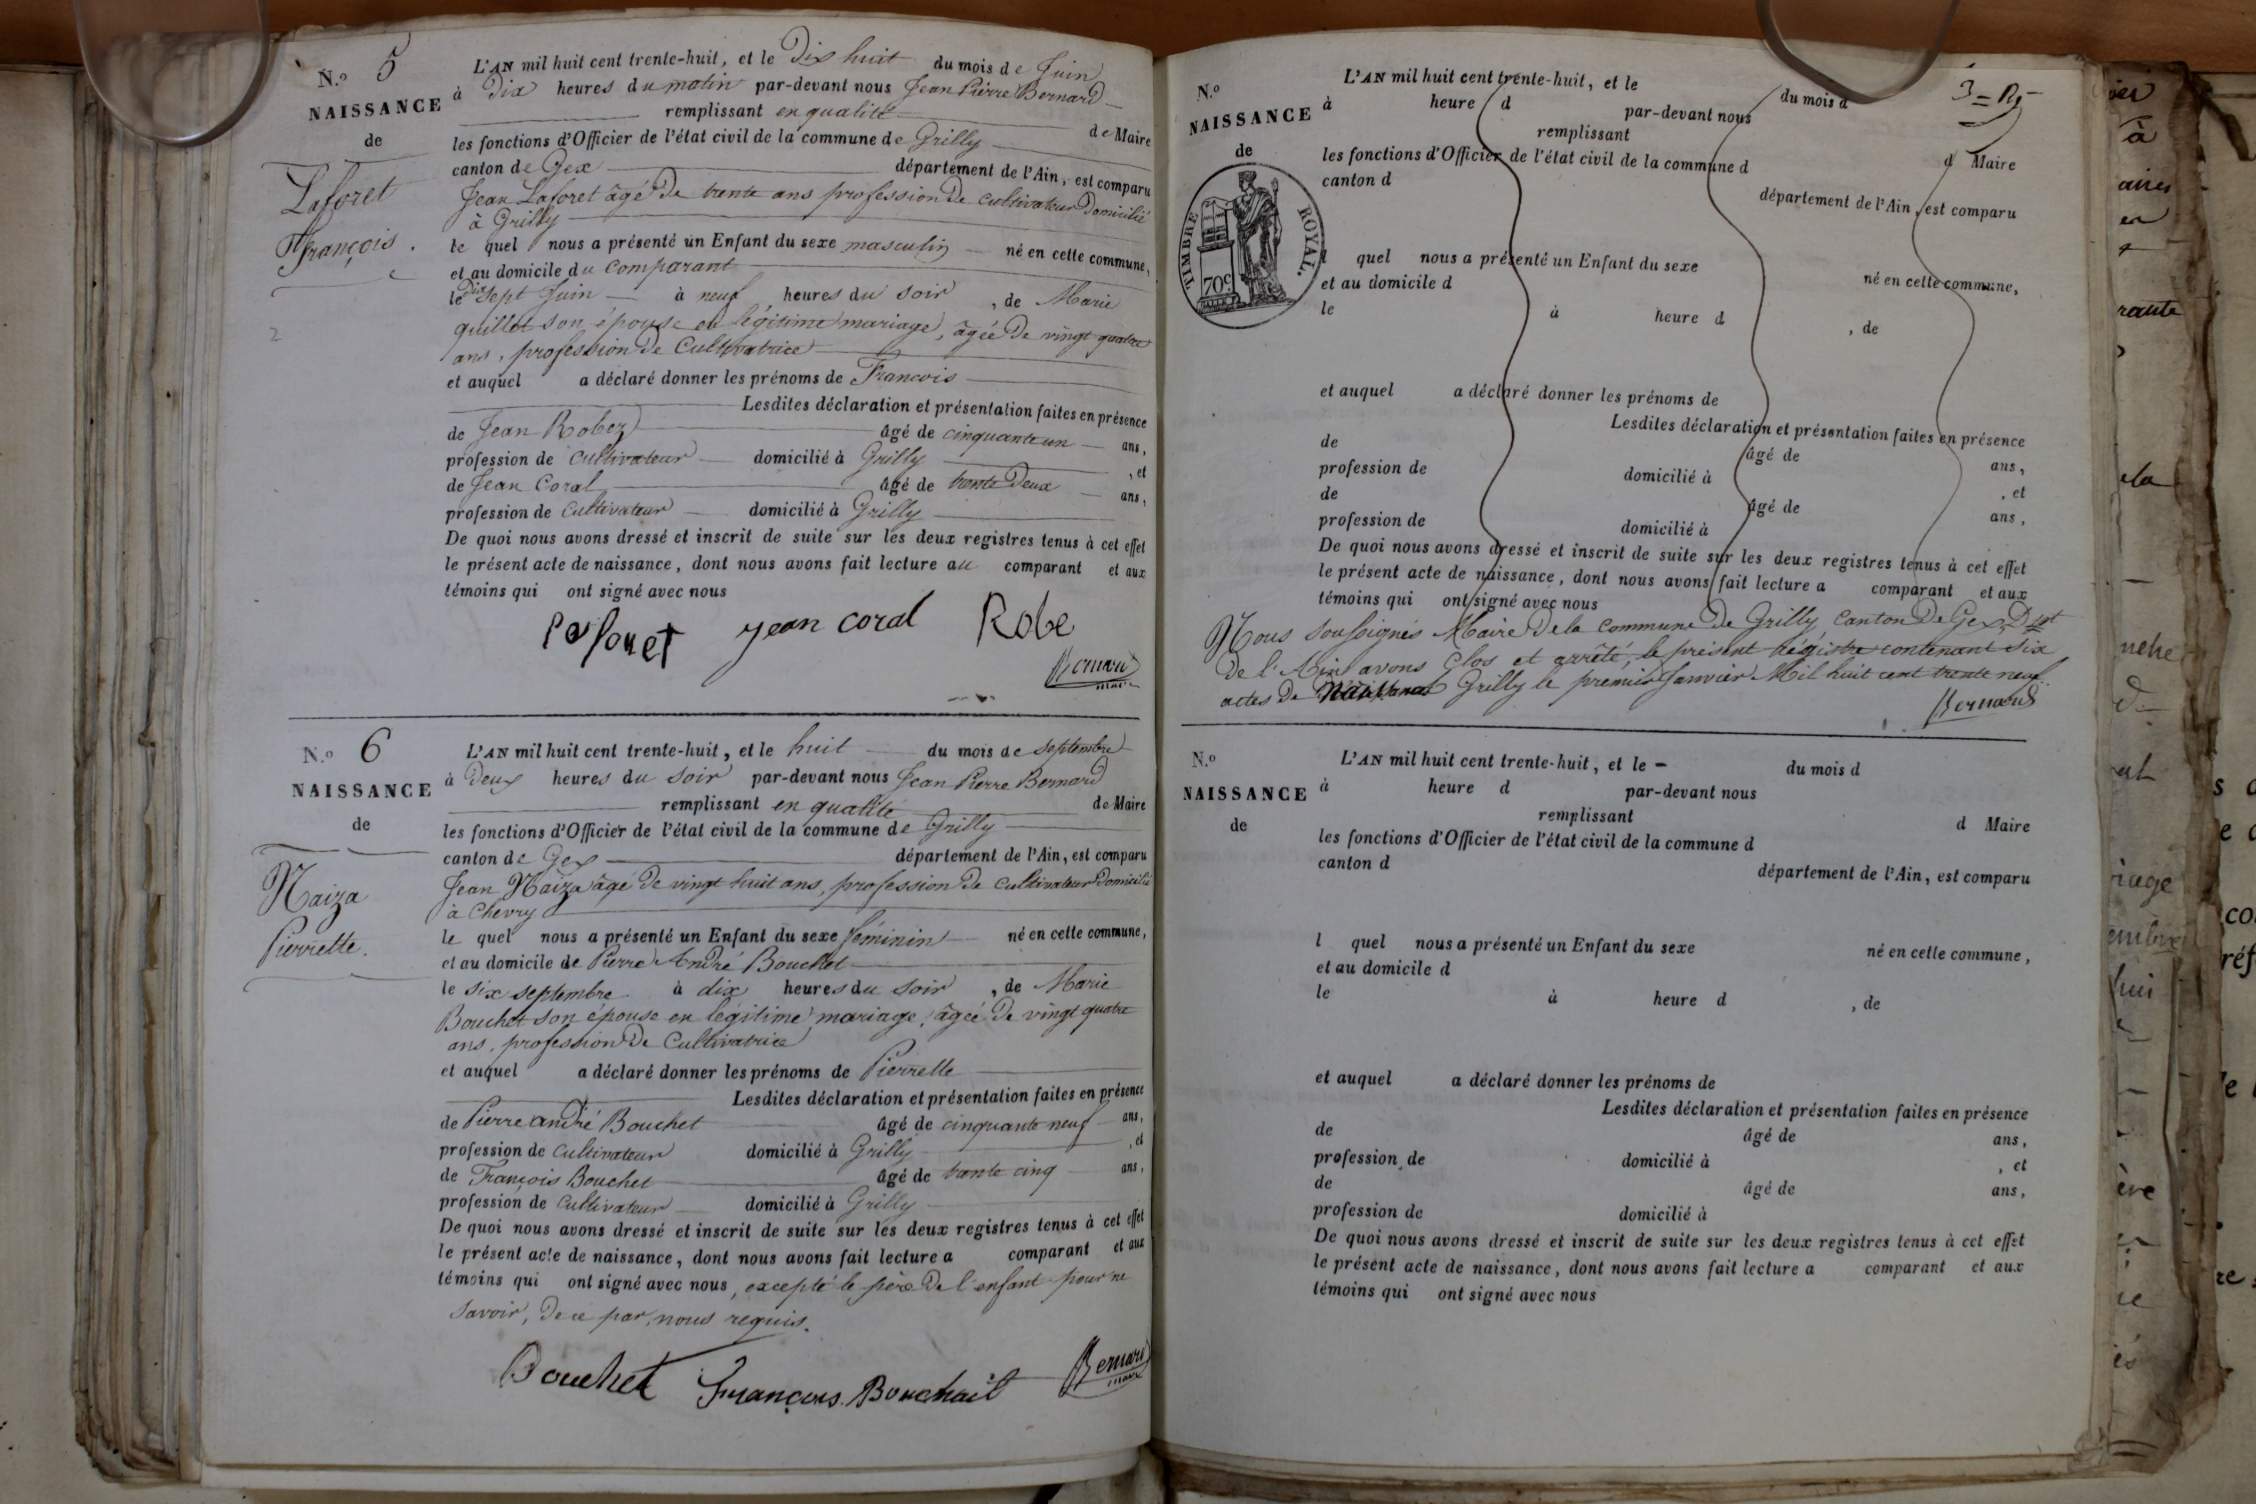 N.o 5
NAISSANCE
de
Laforet
François.
2
L'AN mil huit cent trente-huit, et le Dix huit du mois de Juin
à Dix heures du matin par-devant nous Jean Pierre Bernard
remplissant en qualité de Maire
les fonctions d'Officier de l'état civil de la commune de Grilly
canton de Gex département de l'Ain, est comparu
Jean Laforet âgé de trente ans profession de cultivateur Domicilié
à Grilly
le quel nous a présenté un Enfant du sexe masculin né en cette commune,
et au domicile du comparant
le Dix sept Juin à neuf heures du soir, de Marie
quillet son épouse en légitime mariage, âgée de vingt quatre
ans, profession de Cultivatrice
et auquel a déclaré donner les prénoms de Francois
Lesdites déclaration et présentation faites en présence
de Jean Robez âgé de cinquante un ans,
profession de cultivateur domicilié à Grilly, et
de Jean Coral âgé de trente Deux ans,
profession de Cultivateur domicilié à Grilly
De quoi nous avons dressé et inscrit de suite sur les deux registres tenus à cet effet
le présent acte de naissance, dont nous avons fait lecture au comparant et aux
témoins qui ont signé avec nous
jean coral Robe
Bernard
maire
N.o 6
NAISSANCE
de
Naiza
Pierrette.
L'AN mil huit cent trente-huit, et le huit du mois de septembre
à Deux heures du soir par-devant nous Jean Pierre Bernard
remplissant en qualité de Maire
les fonctions d'Officier de l'état civil de la commune de Grilly
canton de Gex département de l'Ain, est comparu
Jean Naiza âgé de vingt huit ans, profession de cultivateur Domicilié
à Chevry
le quel nous a présenté un Enfant du sexe féminin né en cette commune,
et au domicile de Pierre André Bouchet
le six septembre à dix heures du soir, de Marie
Bouchet son épouse en légitime mariage, âgée de vingt quatre
ans, profession de Cultivatrice
et auquel a déclaré donner les prénoms de Pierrette
Lesdites déclaration et présentation faites en présence
de Pierre andré Bouchet âgé de cinquante neuf ans,
profession de Cultivateur domicilié à Grilly, et
de François Bouchet âgé de trente cinq ans,
profession de Cultivateur domicilié à Grilly
De quoi nous avons dressé et inscrit de suite sur les deux registres tenus à cet effet
le présent acte de naissance, dont nous avons fait lecture a comparant et aux
témoins qui ont signé avec nous, excepté le père de l'enfant pour ne
savoir, de ce par nous requis.
Bouchet François Bouchait Bernard
maire
N.o
NAISSANCE
de
TIMBRE ROYAL.
70c
L'AN mil huit cent trente-huit, et le du mois d
à heure d par-devant nous
remplissant d Maire
les fonctions d'Officier de l'état civil de la commune d
canton d département de l'Ain, est comparu
l quel nous a présenté un Enfant du sexe né en cette commune,
et au domicile d
le à heure d , de
et auquel a déclaré donner les prénoms de
Lesdites déclaration et présentation faites en présence
de âgé de ans,
profession de domicilié à , et
de âgé de ans,
profession de domicilié à
De quoi nous avons dressé et inscrit de suite sur les deux registres tenus à cet effet
le présent acte de naissance, dont nous avons fait lecture a comparant et aux
témoins qui ont signé avec nous
Nous soussignés Maire de la commune de Grilly, Canton de Gex, Dpt
de l'Ain avons Clos et arrêté, le présent Régistre contenant six
actes de Naissances Grilly le premier Janvier Mil huit cent trente neuf.
Bernard
N.o
NAISSANCE
de
L'AN mil huit cent trente-huit, et le du mois d
à heure d par-devant nous
remplissant d Maire
les fonctions d'Officier de l'état civil de la commune d
canton d département de l'Ain, est comparu
l quel nous a présenté un Enfant du sexe né en cette commune,
et au domicile d
le à heure d , de
et auquel a déclaré donner les prénoms de
Lesdites déclaration et présentation faites en présence
de âgé de ans,
profession de domicilié à , et
de âgé de ans,
profession de domicilié à
De quoi nous avons dressé et inscrit de suite sur les deux registres tenus à cet effet
le présent acte de naissance, dont nous avons fait lecture a comparant et aux
témoins qui ont signé avec nous